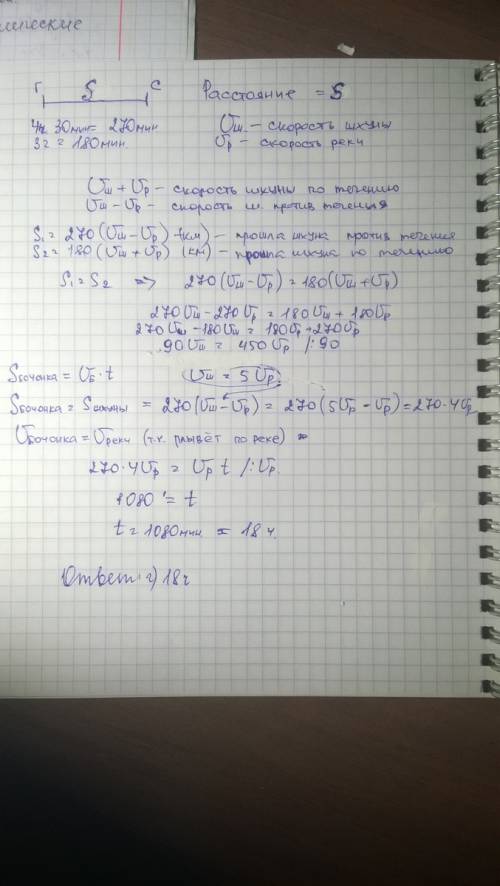 Г S С Расстояние = S
4ч 30 мин = 270 мин
3ч = 180 мин.
Uш – скорость шхуны
Uр – скорость реки
Uш + Uр – скорость шхуны по течению
Uш – Uр – скорость ш. против теченья
S₁ = 270 (Uш – Uр) (км) – прошла шхуна против течения
S₂ = 180 (Uш + Uр) (км) – прошла шхуна по течению
S₁ = S₂ => 270 (Uш – Uр) = 180 (Uш + Uр)
270 Uш – 270 Uр = 180 Uш + 180 Uр
270 Uш – 180 Uш = 180 Uр + 270 Uр
90 Uш = 450 Uр /:90
Sбочонка = Uб · t Uш = 5 Uр
Sбочонка = Sшхуны = 270 (Uш – Uр) = 270 (5Uр – Uр) = 270 · 4Uр
Uбочонка = Uреки (т.к. плывёт по реке)
270 · 4Uр = Uр t /: Uр
1080 = t
t = 1080 мин = 18 ч.
Ответ: г) 18ч